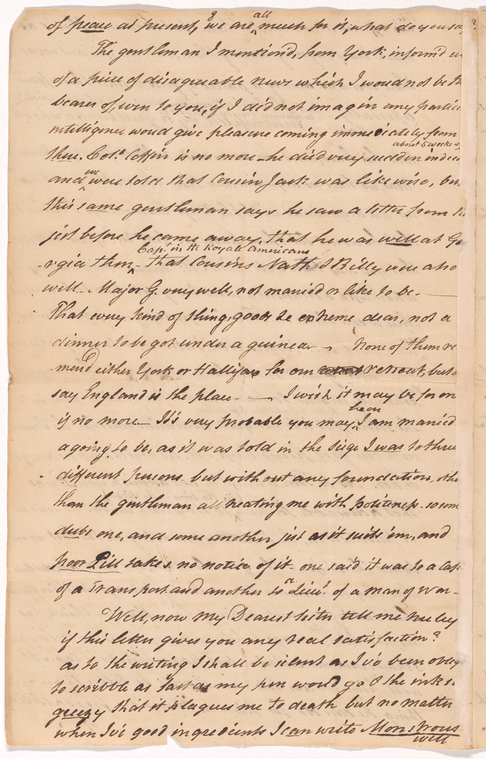 of peace at present, we are all much for it, what do you sa
The gentleman I mention'd, from York, inform'd u
of a piece of disagreable news which I wou'd not be th
bearer of, even to you, if I did not imagin any particu
intelligence wou'd give pleasure coming immediately from
about 6 weeks
thence. Colo. Coffin is no more he died very sudden indeed
and we were told that Cousin Jack was likewise, but
this same gentleman says he saw a letter from
jist before he came away, that he was well at Ge
Capt. in the Royale Americans
rgia then that Cousins Nath. & Billy were also
well. Major G. very well, not married or like to be.
That every kind of thing, goods &c extreme dear, not a
dinner to be got under a guinea. None of them re
mend either York or Hallifax for our retreat, but
say England is the place. I wish it may be for on
if no more. It's very probable you may hear I am married
a going to be, as it was told in the siege I was to three
different persons but without any foundation, othe
than the gentleman all treating me with politeness. some
dubs one, and some another jist as it suits 'em, and
poor Pill takes no notice of it one said it was to a Cap
of a Transport and another to a Lieut. of a man of war
Well, now my Dearest sister tell me truley
if this letter gives you any real satisfaction?
as to the writing I shall be silent as I've been oblig
to scribble as fast as my pen wou'd go & the ink s
greezy that it plagues me to death but no matter
when I've good ingredients I can write Monstrous
well